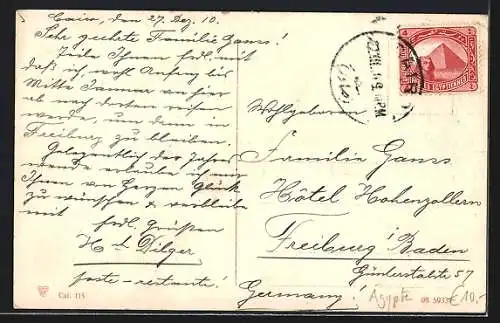 Cairo, den 27. Dez. 10.
Sehr geehrte Familie Gans!
Teile Ihnen frdl. mit
daß ich, wohl Anfang bis
Mitte Januar an hier
ab nach dorten reisen
werde, um dann in
Freiburg zu bleiben.
Gelegentlich des Jahres
wende erlaube ich mir
Ihnen von Herzen Glück
zu wünschen & verbleibe
mit frdl. Grüßen
H Dilger
poste-restante!
Cat. 115
CAIRO
Wohlgeboren
Familie Gans
Hôtel Hohenzollern
Freiburg i/Baden
Günterstalstr 57
Germany!
Ägypte
€10,-